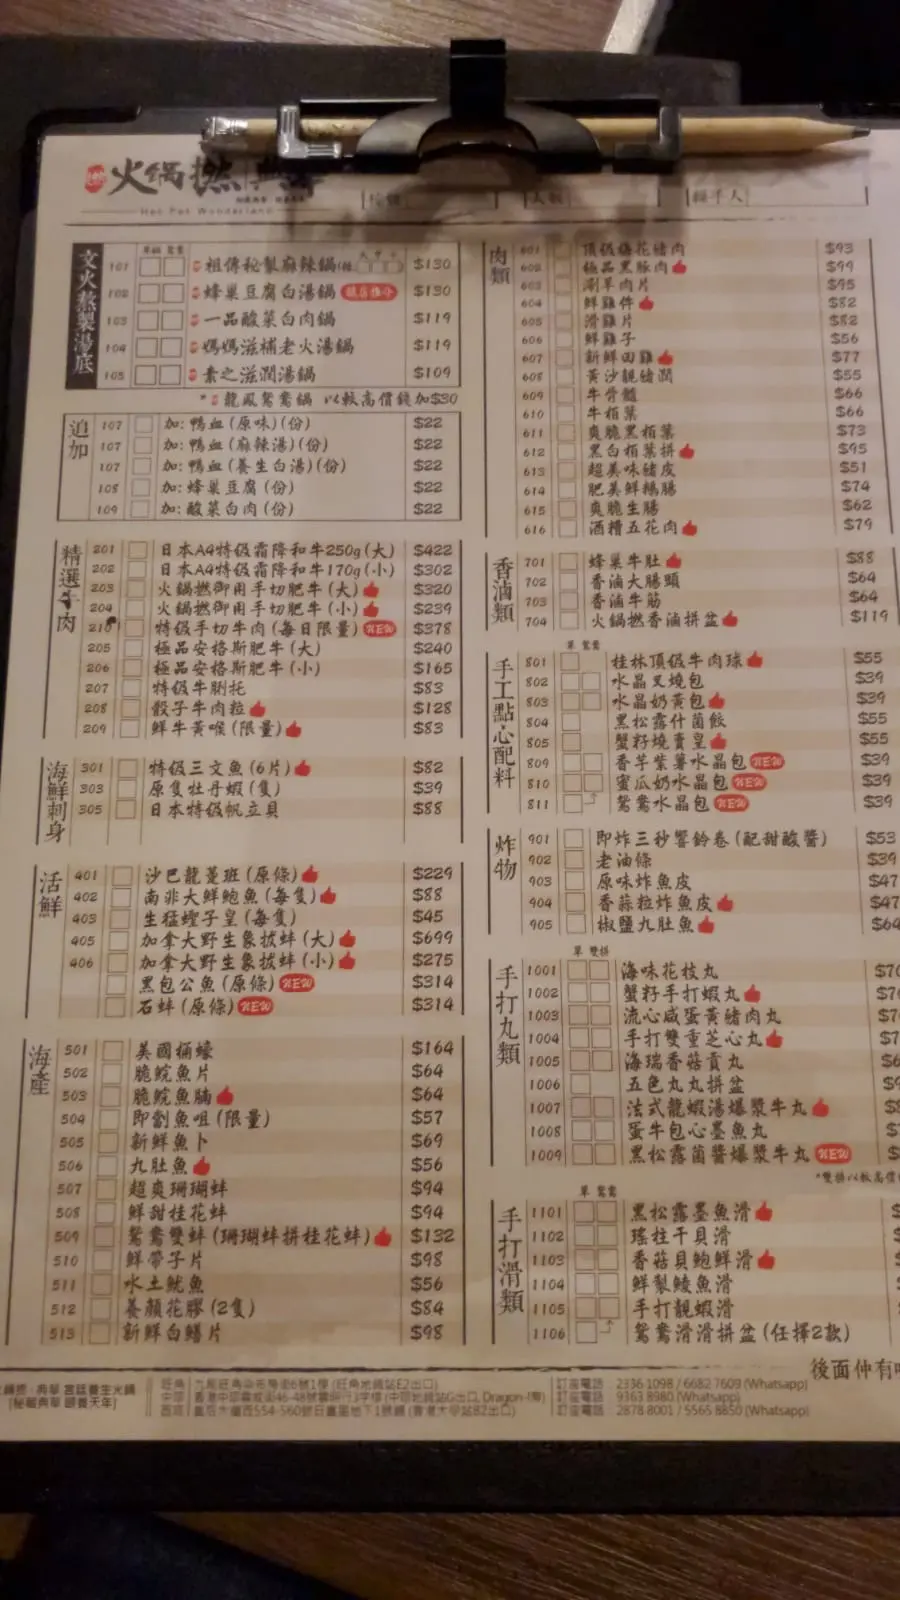 火鍋撚
Hot Pot Wonderland
文火熬製湯底
101 祖傳秘製麻辣鍋 $130
102 蜂巢豆腐白湯鍋 $130
103 一品酸菜白肉鍋 $119
104 媽媽滋補老火湯鍋 $119
105 素之滋潤湯鍋 $109
*龍鳳鴛鴦鍋 以較高價錢加$30
追加
107 加:鴨血(原味)(份) $22
107 加:鴨血(麻辣湯)(份) $22
107 加:鴨血(養生白湯)(份) $22
108 加:蜂巢豆腐(份) $22
109 加:酸菜白肉(份) $22
精選牛肉
201 日本A4特級霜降和牛250g(大) $422
202 日本A4特級霜降和牛170g(小) $302
203 火鍋撚御用手切肥牛(大) $320
204 火鍋撚御用手切肥牛(小) $239
210 特級手切牛肉(每日限量) NEW $378
205 極品安格斯肥牛(大) $240
206 極品安格斯肥牛(小) $165
207 特級牛脷托 $83
208 骰子牛肉粒 $128
209 鮮牛黃喉(限量) $83
海鮮刺身
301 特級三文魚(6片) $82
303 原隻牡丹蝦(隻) $39
305 日本特級帆立貝 $88
活鮮
401 沙巴龍躉班(原條) $229
402 南非大鮮鮑魚(每隻) $88
403 生猛蟶子皇(每隻) $45
405 加拿大野生象拔蚌(大) $699
406 加拿大野生象拔蚌(小) $275
黑包公魚(原條) NEW $314
石蚌(原條) NEW $314
海產
501 美國桶蠔 $164
502 脆鯇魚片 $64
503 脆鯇魚腩 $64
504 即劏魚咀(限量) $57
505 新鮮魚卜 $69
506 九肚魚 $56
507 超爽珊瑚蚌 $94
508 鮮甜桂花蚌 $94
509 鴛鴦雙蚌(珊瑚蚌拼桂花蚌) $132
510 鮮帶子片 $98
511 水土魷魚 $56
512 養顏花膠(2隻) $84
513 新鮮白鱔片 $98
肉類
601 頂級梅花豬肉 $93
602 極品黑豚肉 $99
603 涮羊肉片 $95
604 鮮雞件 $82
605 滑雞片 $82
606 鮮雞子 $56
607 新鮮田雞 $77
608 黃沙靚豬潤 $55
609 牛骨髓 $66
610 牛栢葉 $66
611 爽脆黑栢葉 $73
612 黑白栢葉拼 $95
613 超美味豬皮 $51
614 肥美鮮鵝腸 $74
615 爽脆生腸 $62
616 酒糟五花肉 $79
香滷類
701 蜂巢牛肚 $88
702 香滷大腸頭 $64
703 香滷牛筋 $64
704 火鍋撚香滷拼盆 $119
手工點心配料
單 鴛鴦
801 桂林頂級牛肉球 $55
802 水晶叉燒包 $39
803 水晶奶黃包 $39
804 黑松露什菌餃 $55
805 蟹籽燒賣皇 $55
809 香芋紫薯水晶包 NEW $39
810 蜜瓜奶水晶包 NEW $39
811 鴛鴦水晶包 NEW $39
炸物
901 即炸三秒響鈴卷(配甜酸醬) $53
902 老油條 $39
903 原味炸魚皮 $47
904 香蒜粒炸魚皮 $47
905 椒鹽九肚魚 $64
手打丸類
單 雙拼
1001 海味花枝丸
1002 蟹籽手打蝦丸
1003 流心咸蛋黃豬肉丸
1004 手打雙重芝心丸
1005 海瑞香菇貢丸
1006 五色丸丸拼盆
1007 法式龍蝦湯爆漿牛丸
1008 蛋牛包心墨魚丸
1009 黑松露菌醬爆漿牛丸 NEW
*雙拼以較高價
手打滑類
單 鴛鴦
1101 黑松露墨魚滑
1102 瑤柱干貝滑
1103 香菇貝鮑鮮滑
1104 鮮製鯪魚滑
1105 手打靚蝦滑
1106 鴛鴦滑滑拼盆(任擇2款)
後面仲有
訂座電話 2336 1098 / 6682 7609 (Whatsapp)
訂座電話 9363 8980 (Whatsapp)
訂座電話 2878 8001 / 5565 8850 (Whatsapp)